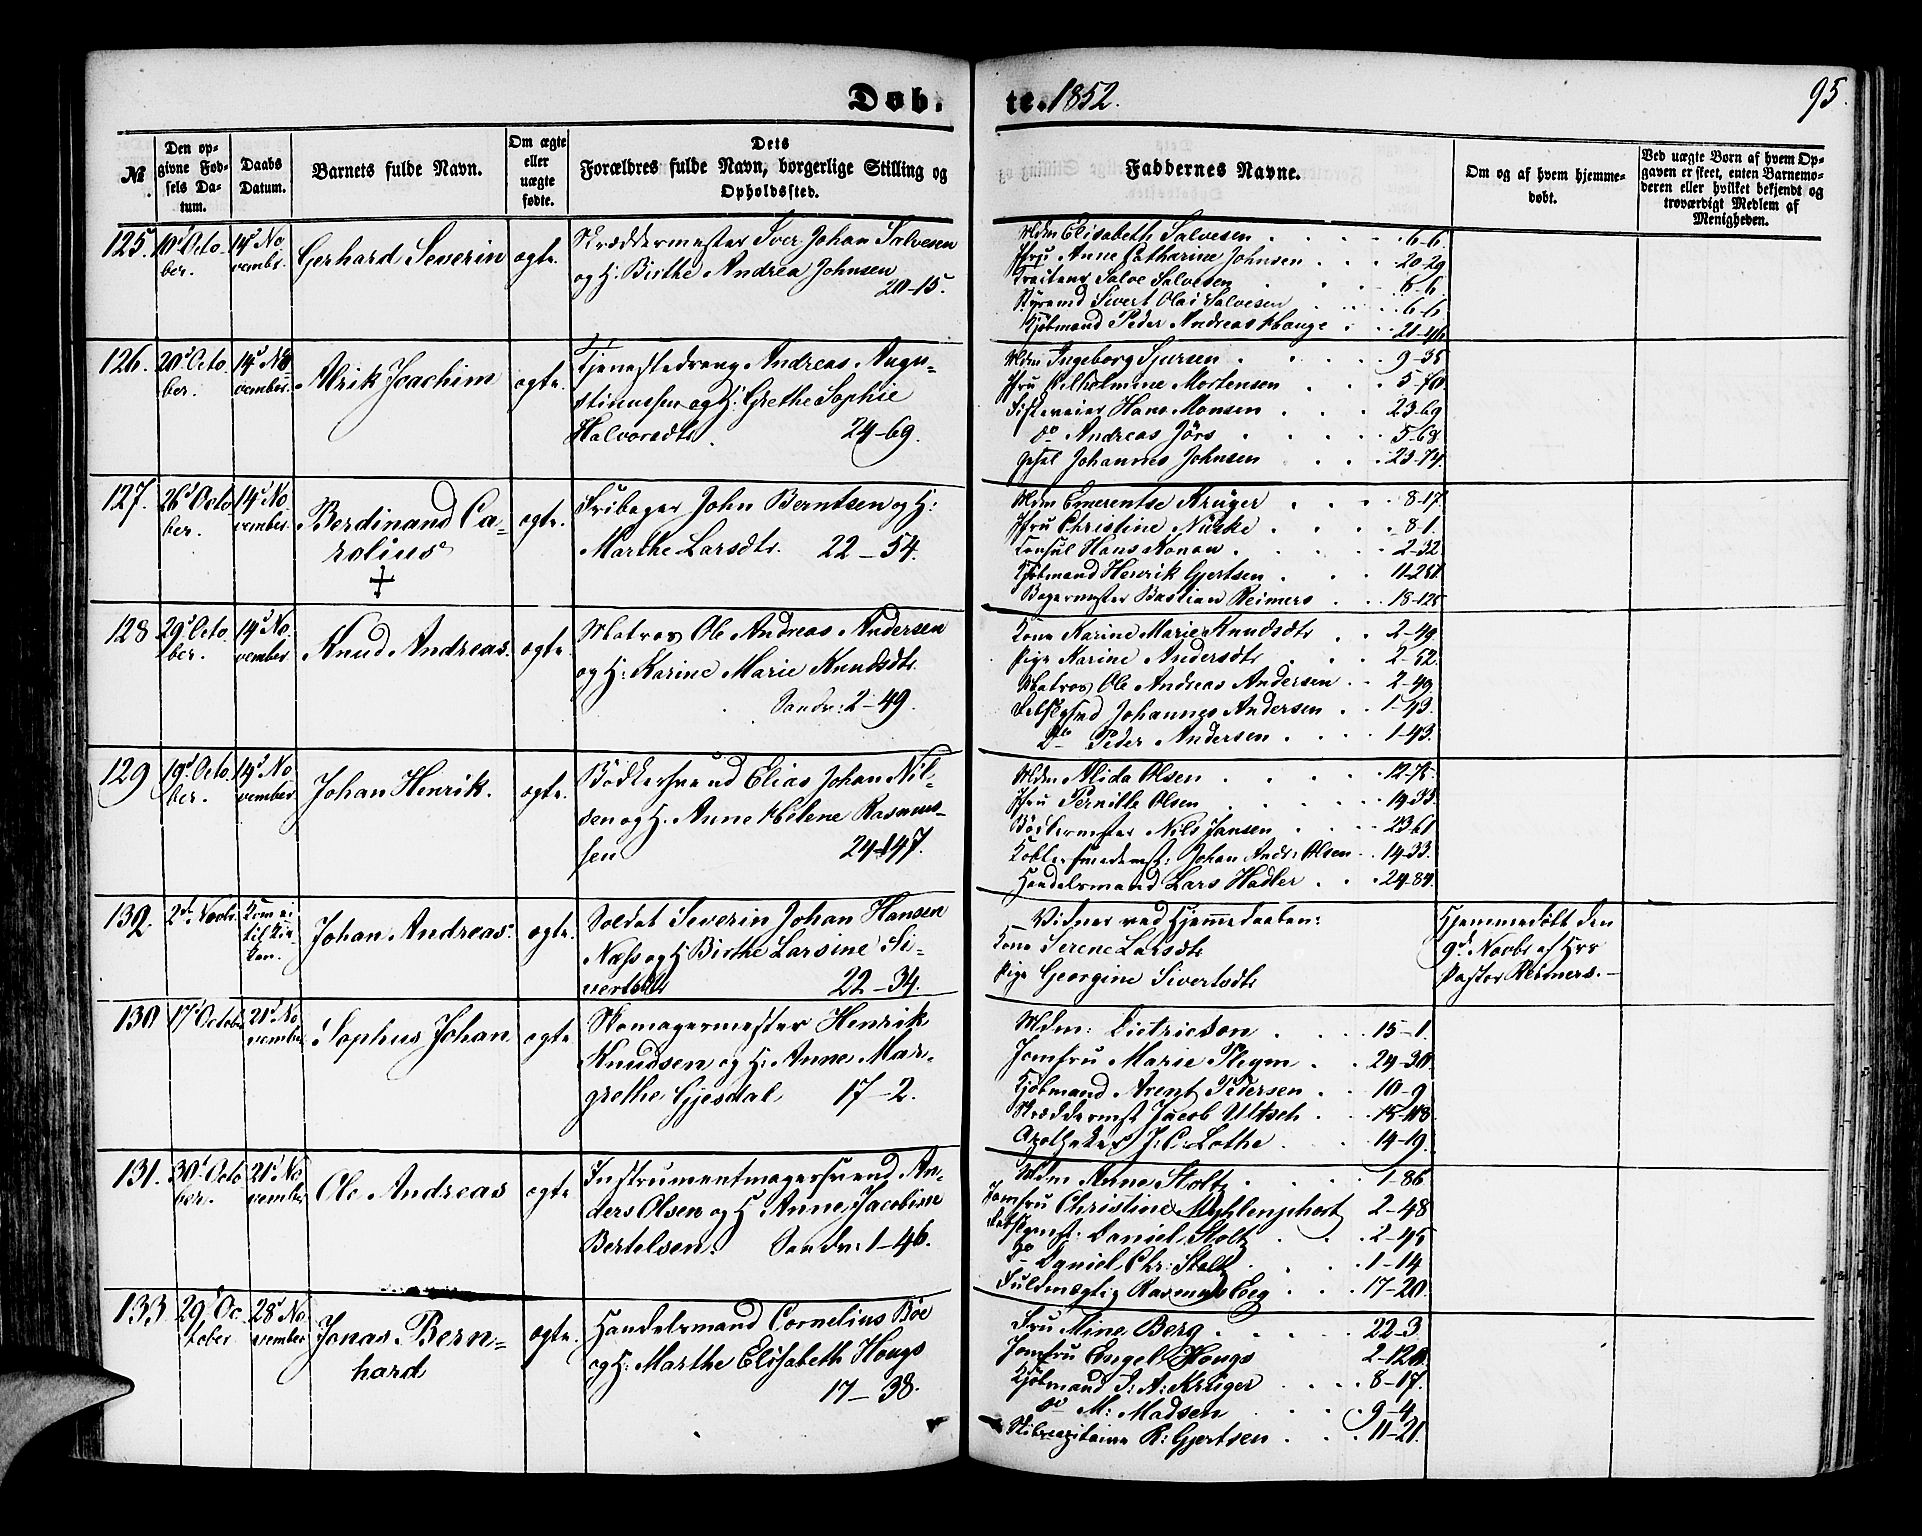 Døb-
te. 1852.
95.
№
Den opgivne Fødsels Datum.
Daabs Datum.
Barnets fulde Navn.
Om ægte eller uægte født.
Dets Forældres fulde Navn, borgerlige Stilling og Opholdssted.
Faddernes Navne.
Om og af hvem hjemmedøbt.
Ved uægte Børn af hvem Opgaven er skeet, enten Barnemoderen eller hvilket bekjendt og troværdigt Medlem af Menigheden.
125. 10d Octo-
ber. 14d No
vember. Gerhard Severin ægte. Skræddermester Iver Johan Salvesen
og H: Birthe Andrea Johnsen
20-15.
Mdm Elisabeth Salvesen 6-6.
Jfru Anne Catharine Johnsen 20-29
Salve Salvesen 6-6
Styrmd Sivert Olai Salvesen 6-6
Kjøbmand Peder Andreas Hauge 21-46
126. 20d Octo
ber. 14d No
vember. Alrik Joachim ægte. Tjenestedreng Andreas Augu-
stinussen og H: Grethe Sophie
Halvorsdtr. 24-69.
Mdm Ingeborg Sjursen 9-35
Jfru Vilhelmine Mortensen 5-70
Hans Monsen 23-69
do Andreas Jörs 5-68
Johannes Johnsen 23-74.
127. 26d Octo
ber. 14d No
vember. Berdinand Ca-
rolius
+
ægte. John Berntsen og H:
Marthe Larsdtr. 22-54.
Mdm Emerentse Krüger 8-17.
Jfru Christine 8-1.
Consul Hans Konow 2-32
Kjøbmand Henrik Gjertsen 11-281
Bagermester Bastian Reimers 18-125
128 29d Octo
ber. 14d No
vember Knud Andreas. ægte. Matros Ole Andreas Andersen
og H: Karine Marie Knudsdtr
Sandv: 2-49.
Kone Karine Marie Knudsdtr 2-49
Pige Karine Andersdtr 2-52.
Matros Ole Andreas Andersen 2-49
Johannes Andersen 1-43.
Do Peder Andersen 1-43.
129 19d Octo
ber. 14d No
vember Johan Henrik. ægte. Bødkersvend Elias Johan Nil-
sen og H. Anne Helene Rasmus-
sen 24-147.
Mdm Alida Olsen 12-75
Jfru Pernille Olsen 19-33.
Bødkermster Nils Jansen 23-61
Kobbersmedemst: Johan Andr: Olsen 14-33.
Handelsmand Lars Hadler 24-84.
132. 2d Novbr. Kom ei
til Kir-
ken. Johan Andreas. ægte. Soldat Severin Johan Hansen
Næss og H Birthe Larsine Si-
vertsdtr 22-34.
Vidner ved Hjemmedaaben:
Kone Serene Larsdtr
Pige Georgine Sivertsdtr
Hjemmedøbt den
9d Novbr af Hrr
Pastor Reimers.
130 17d October 21d No
vember Sophus Johan ægte Skomagermester Henrik
Knudsen og H: Anne Mar-
grethe Gjesdal 17-2.
Mdm: Dietrichson 15-1.
Jomfru Marie Pleym 24-30
Kjøbmand Arent Pedersen 10-9
Skræddermst Jacob Ultsch 15-118
Apotheker J: C: Lothe 14-19.
131. 30d Octo
ber. 21d No
vember Ole Andreas ægte Instrumentmagersvend An-
ders Olsen og H Anne Jacobine
Bertelsen. Sandv: 1-46.
Mdm Anne Stoltz 1-86
Jomfru Christine Myhlenphort 2-48
Daniel Stoltz 2-45
Do Daniel Chr: Stoltz 1-14
Fuldmægtig Rasmus Eeg 17-20
133 29d Oc
tober 28d No
vember Jonas Bern-
hard ægte. Handelsmand Cornelius Böe
og H: Marthe Elisabeth Hougs
17-38.
Fru Mine Berg 22-3.
Jomfru Engel Hougs 2-120.
Kjøbmand J: A: Krüger 8-17.
do M: Madsen 9-4
Skibscapitaine R: Gjertsen 11-21.